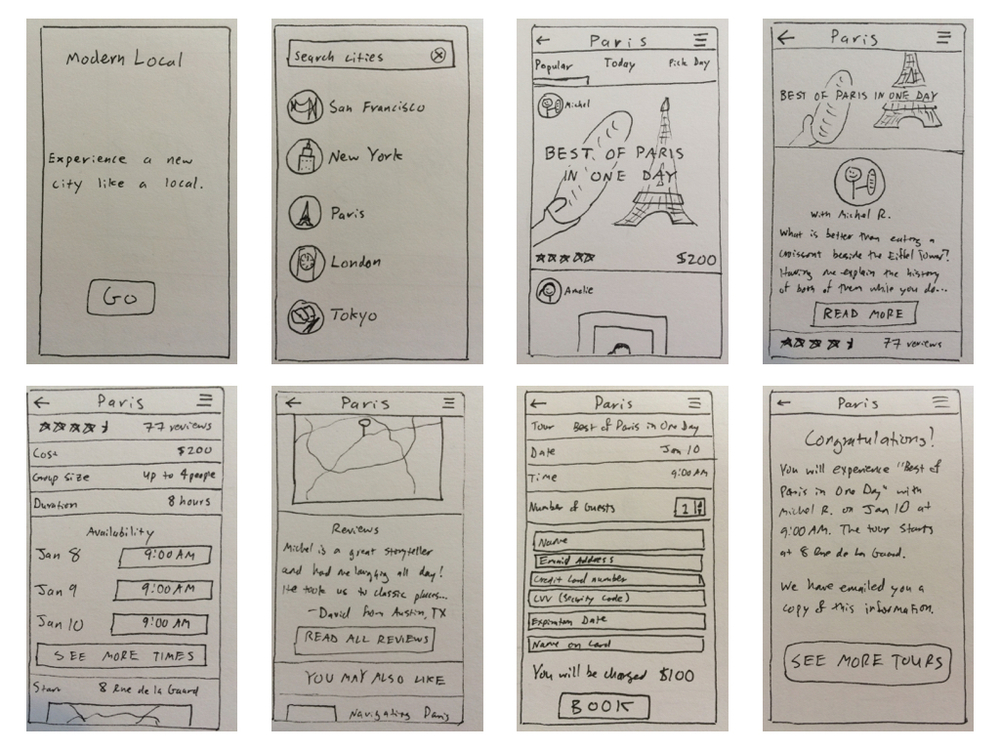 Modern Local
Experience a new
city like a local.
GO
Search cities
San Francisco
New York
Paris
London
Tokyo
Paris
Popular Today Pick Day
Michel
BEST OF PARIS
IN ONE DAY
$200
Amelie
Paris
BEST OF PARIS IN ONE DAY
with Michel R.
What is better than eating a
croissant beside the Eiffel Tower?
Having me explain the history
of both of them while you do...
READ MORE
77 reviews
Paris
77 reviews
Cost $200
Group Size up to 4 people
Duration 8 hours
Availability
Jan 8 9:00 AM
Jan 9 9:00 AM
Jan 10 9:00 AM
SEE MORE TIMES
Start 8 Rue de la Guard
Paris
Reviews
Michel is a great storyteller
and had me laughing all day!
He took us to classic places...
-David from Austin, TX
READ ALL REVIEWS
YOU MAY ALSO LIKE
Navigating Paris
Paris
Tour Best of Paris in One Day
Date Jan 10
Time 9:00 AM
Number of Guests
Name
Email Address
Credit Card number
CVV (Security Code)
Expiration Date
Name on Card
You will be charged $100
BOOK
Paris
Congratulations!
You will experience "Best of
Paris in One Day" with
Michel R. on Jan 10 at
9:00 AM. The tour starts
at 8 Rue de la Guard.
We have emailed you a
copy of this information.
SEE MORE TOURS